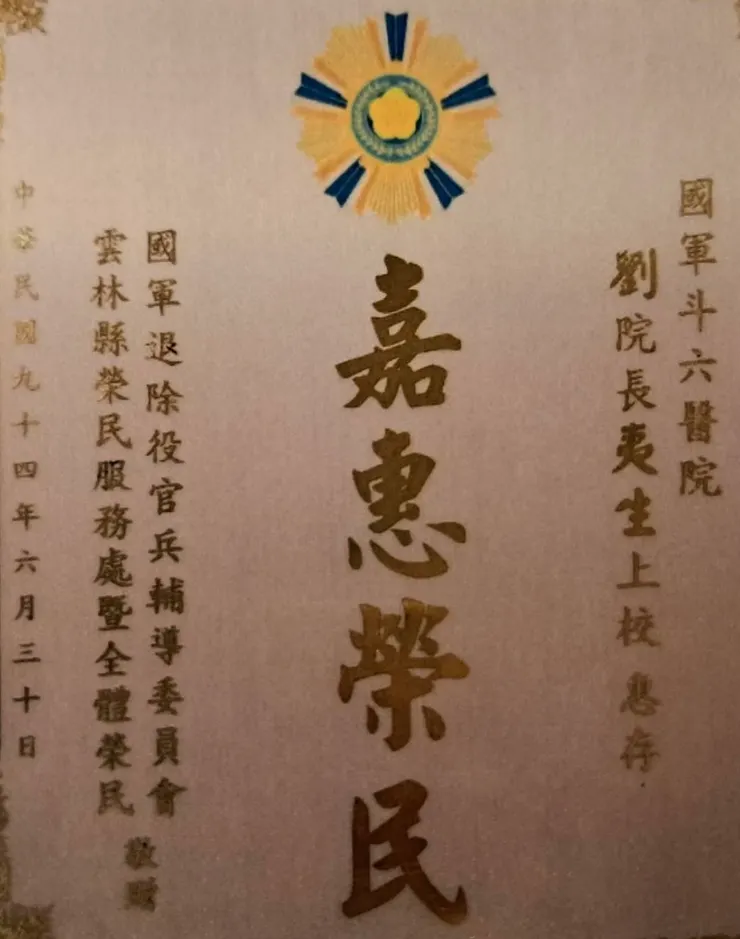 國軍斗六醫院
劉院長夷生上校 惠存
嘉惠榮民
國軍退除役官兵輔導委員會
雲林縣榮民服務處暨全體榮民
敬贈
中華民國九十四年六月三十日